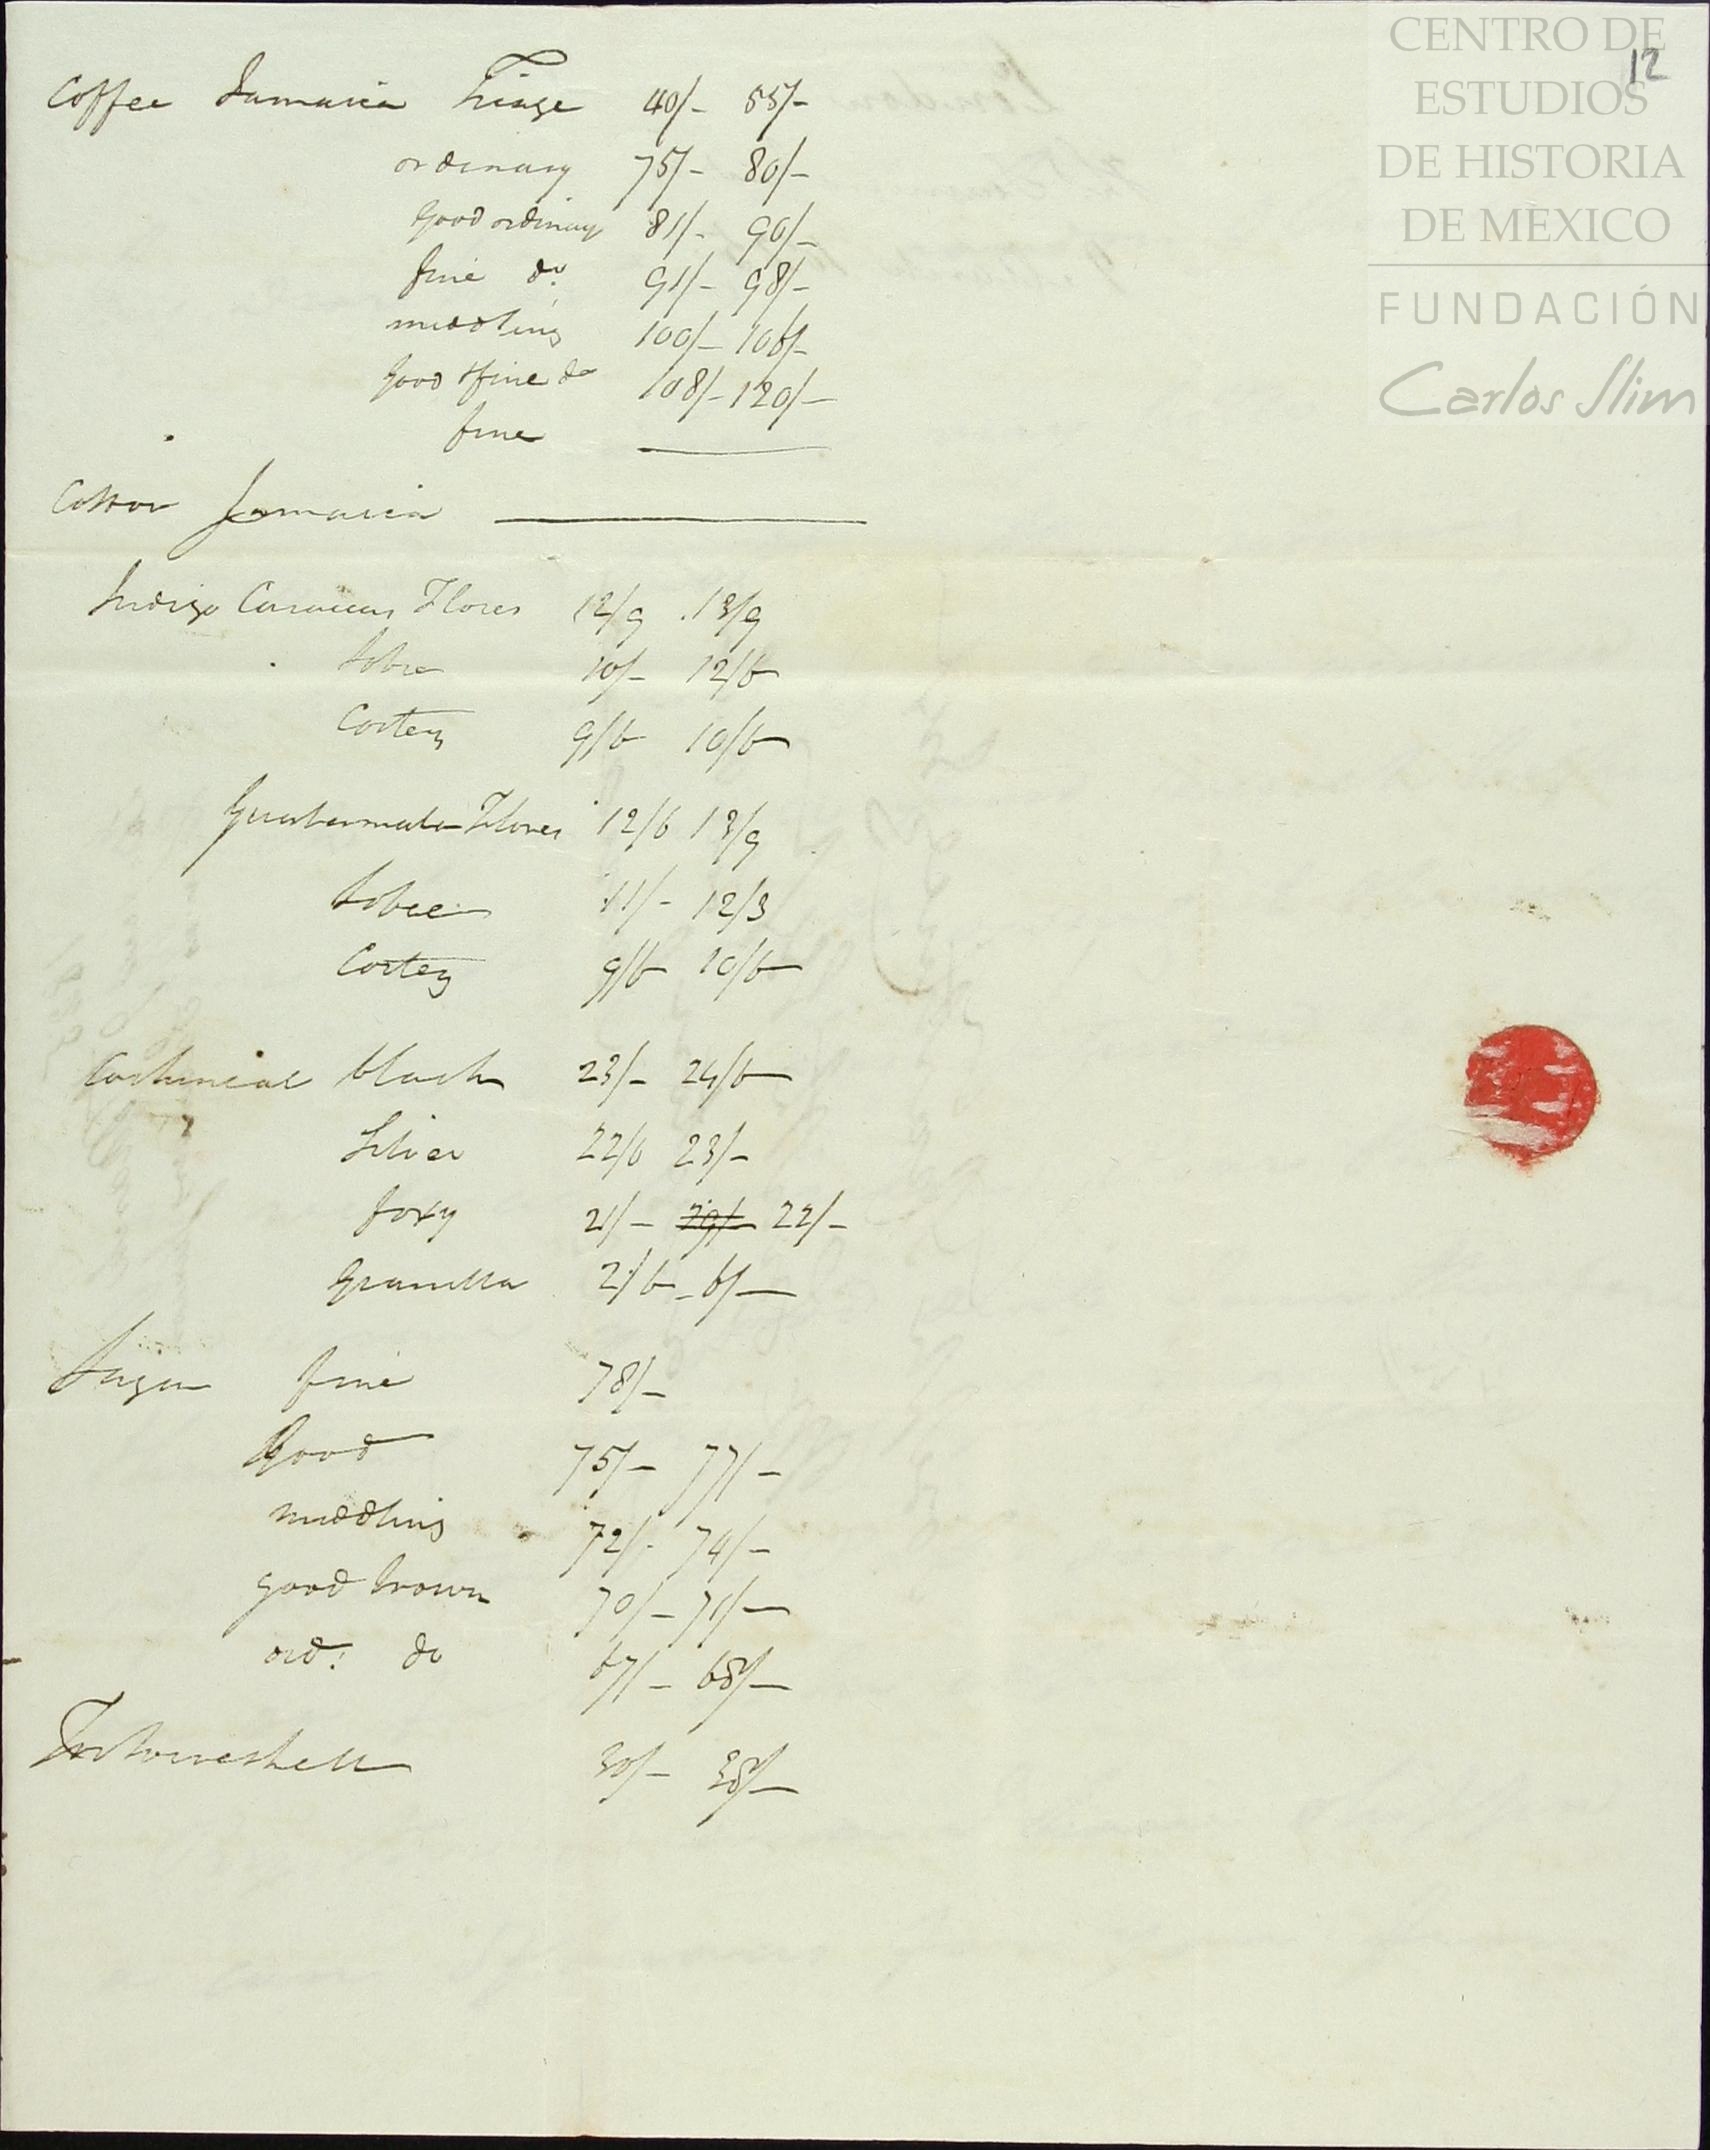 CENTRO DE
ESTUDIOS
DE HISTORIA
DE MEXICO
FUNDACIÓN
Carlos Slim
12
Coffee Jamaica Triage 40/- 55/-
ordinary 75/- 80/-
good ordinary 81/- 90/-
fine do. 91/- 98/-
middling 100/- 106/-
good & fine do 108/- 120/-
fine —
Cotton Jamaica —
Indigo Caraccas Flores 12/9 13/9
Sobre 10/- 12/6
Cortez 9/6 10/6
Guatermala Flores 12/6 13/9
Sobre 11/- 12/3
Cortez 9/6 10/6
Cochineal black 23/- 24/6
Silver 22/6 23/-
foxy 21/- 22/-
Granilla 2/6 - 6/-
Sugar fine 78/-
Good 75/- 77/-
middling 72/- 74/-
good brown 70/- 71/-
ord: do 67/- 68/-
Tortoiseshell 30/- 38/-